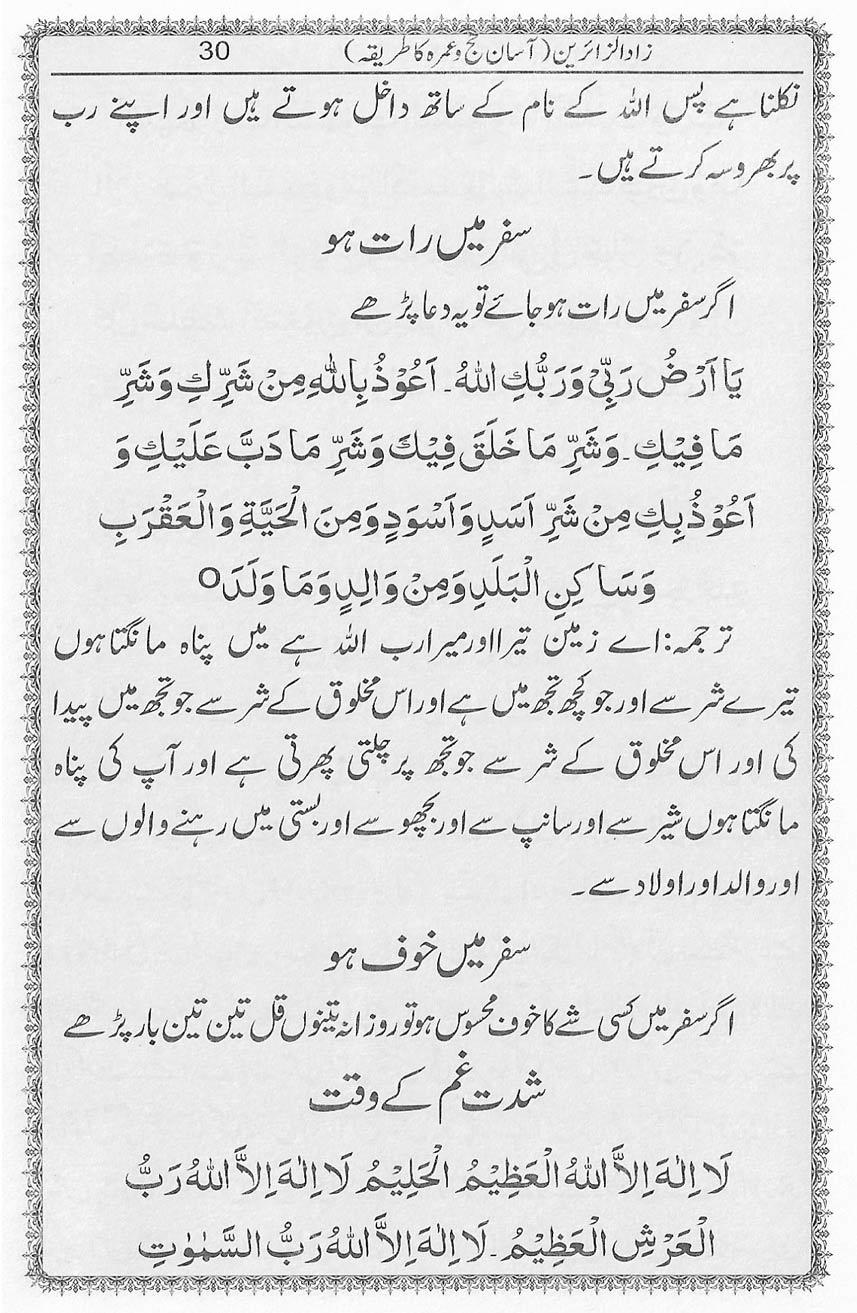 زاد الزائرین (آسان حج وعمرہ کا طریقہ) 30
نکلنا ہے پس اللہ کے نام کے ساتھ داخل ہوتے ہیں اور اپنے رب
پر بھروسہ کرتے ہیں۔
سفر میں رات ہو
اگر سفر میں رات ہو جائے تو یہ دعا پڑھے
يَا اَرْضُ رَبِّيْ وَرَبُّكِ اللهُ۔ اَعُوْذُ بِاللهِ مِنْ شَرِّكِ وَشَرِّ
مَا فِيْكِ۔ وَشَرِّ مَا خَلَقَ فِيْكَ وَشَرِّ مَا دَبَّ عَلَيْكِ وَ
اَعُوْذُ بِكِ مِنْ شَرِّ اَسَدٍ وَاَسْوَدٍ وَمِنَ الْحَيَّةِ وَالْعَقْرَبِ
وَسَاكِنِ الْبَلَدِ وَمِنْ وَالِدٍ وَمَا وَلَدَ O
ترجمہ: اے زمین تیرا اور میرا رب اللہ ہے میں پناہ مانگتا ہوں
تیرے شر سے اور جو کچھ تجھ میں ہے اور اس مخلوق کے شر سے جو تجھ میں پیدا
کی اور اس مخلوق کے شر سے جو تجھ پر چلتی پھرتی ہے اور آپ کی پناہ
مانگتا ہوں شیر سے اور سانپ سے اور بچھو سے اور بستی میں رہنے والوں سے
اور والد اور اولاد سے۔
سفر میں خوف ہو
اگر سفر میں کسی شے کا خوف محسوس ہو تو روزانہ تینوں قل تین تین بار پڑھے
شدت غم کے وقت
لَا اِلٰهَ اِلَّا اللهُ الْعَظِيْمُ الْحَلِيْمُ لَا اِلٰهَ اِلَّا اللهُ رَبُّ
الْعَرْشِ الْعَظِيْمُ۔ لَا اِلٰهَ اِلَّا اللهُ رَبُّ السَّمٰوٰتِ